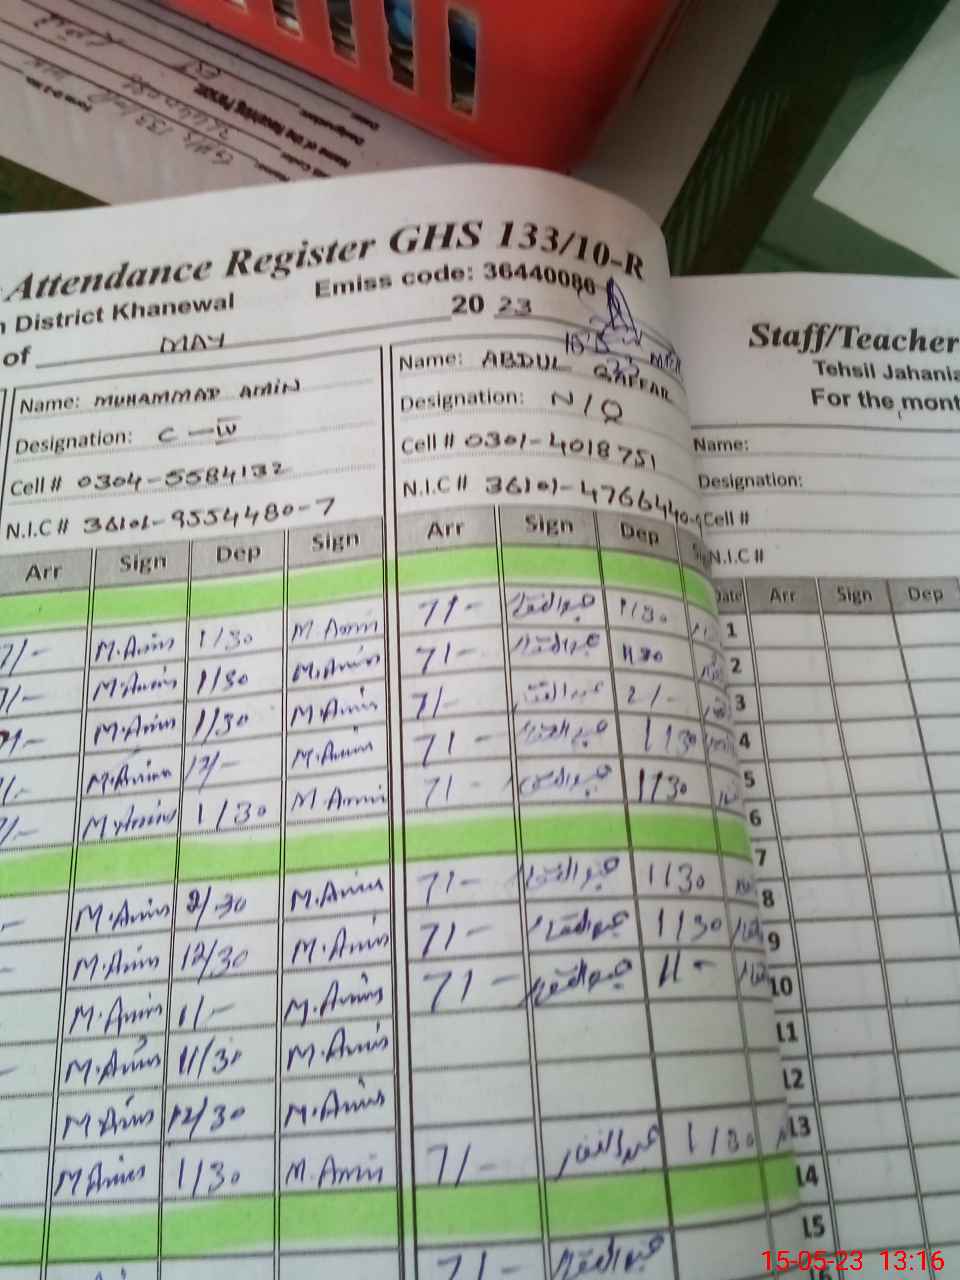 Attendance Register GHS 133/10-R
District Khanewal Emiss code: 36440086
of MAY 20 23
Name: MUHAMMAD AMIN
Designation: C-IV
Cell # 0304-5584132
N.I.C # 36101-9554480-7
Arr Sign Dep Sign
7/- M.Amin 1/30 M.Amin
7/- M.Amin 1/30 M.Amin
7/- M.Amin 1/30 M.Amin
7/- M.Amin 12/- M.Amin
7/- M.Amin 1/30 M.Amin
M.Amin 2/30 M.Amin
M.Amin 12/30 M.Amin
M.Amin 1/- M.Amin
M.Amin 11/30 M.Amin
M.Amin 12/30 M.Amin
M.Amin 1/30 M.Amin
Name: ABDUL GAFFAR
Designation: N/Q
Cell # 0301-4018751
N.I.C # 36101-4766440-
Arr Sign Dep
7/- عبدالغفار 1/30
7/- عبدالغفار 1/30
7/- عبدالغفار 2/-
7/- عبدالغفار 1/30
7/- عبدالغفار 1/30
7/- عبدالغفار 1/30
7/- عبدالغفار 1/30
7/- عبدالغفار 11-
7/- عبدالغفار 1/30
7/- عبدالغفار
Staff/Teacher
Tehsil Jahania
For the mont
Name:
Designation:
Cell #
N.I.C #
Date Arr Sign Dep
1
2
3
4
5
6
7
8
9
10
11
12
13
14
15
Name of the Receiving Person:
Designation:
15-05-23 13:16